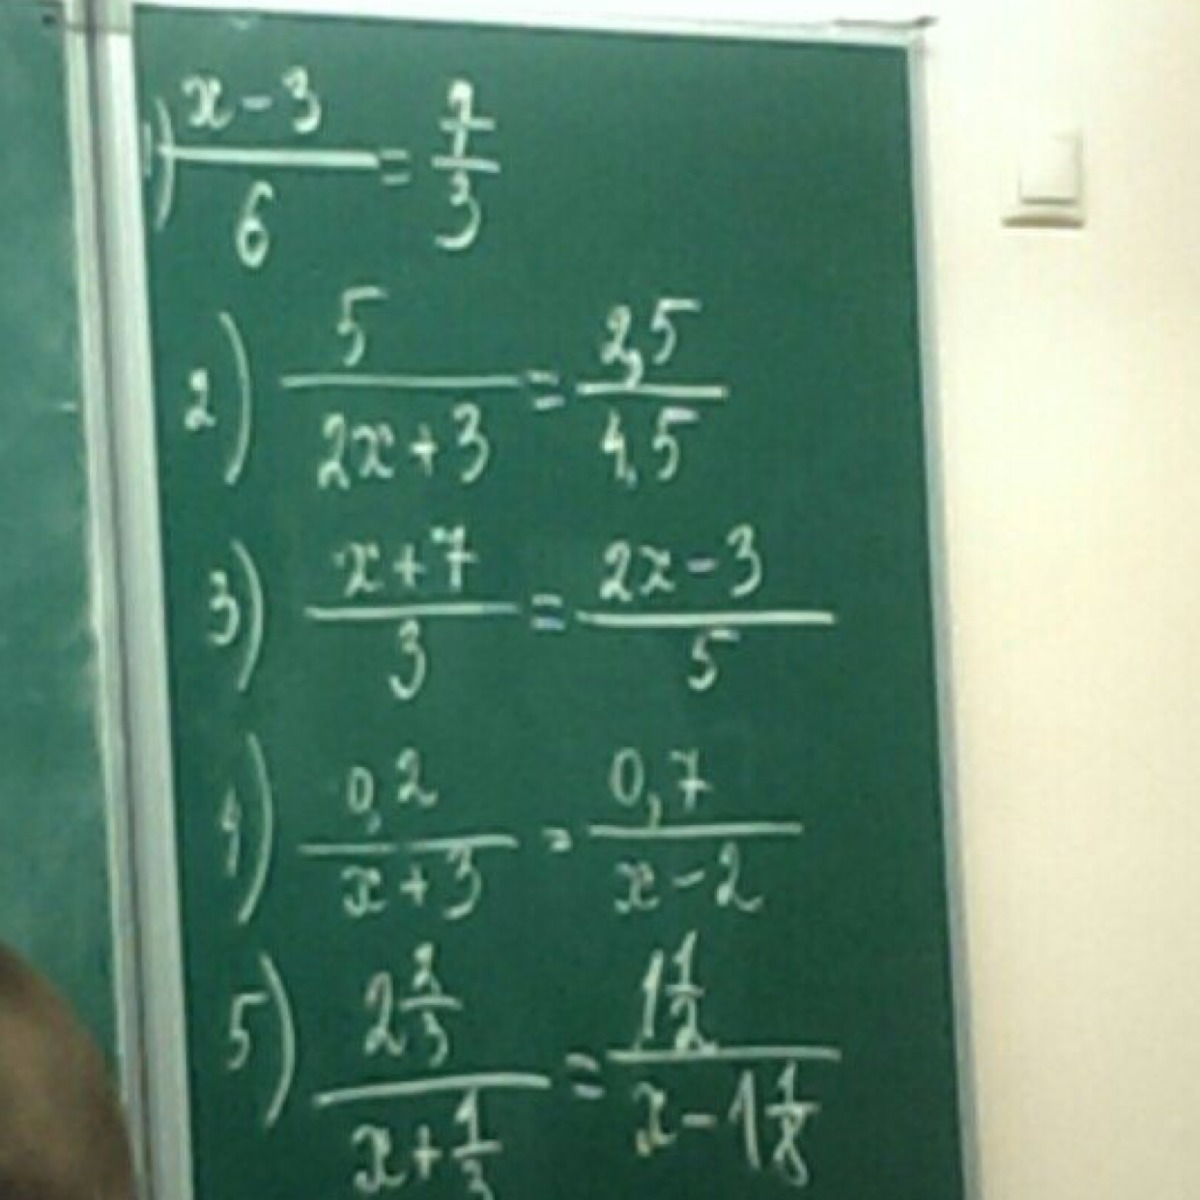 1) x-3/6 = 7/3
2) 5/2x+3 = 2,5/4,5
3) x+7/3 = 2x-3/5
4) 0,2/x+3 = 0,7/x-2
5) 2 2/3/x+1/3 = 1 1/2/x-1 1/8